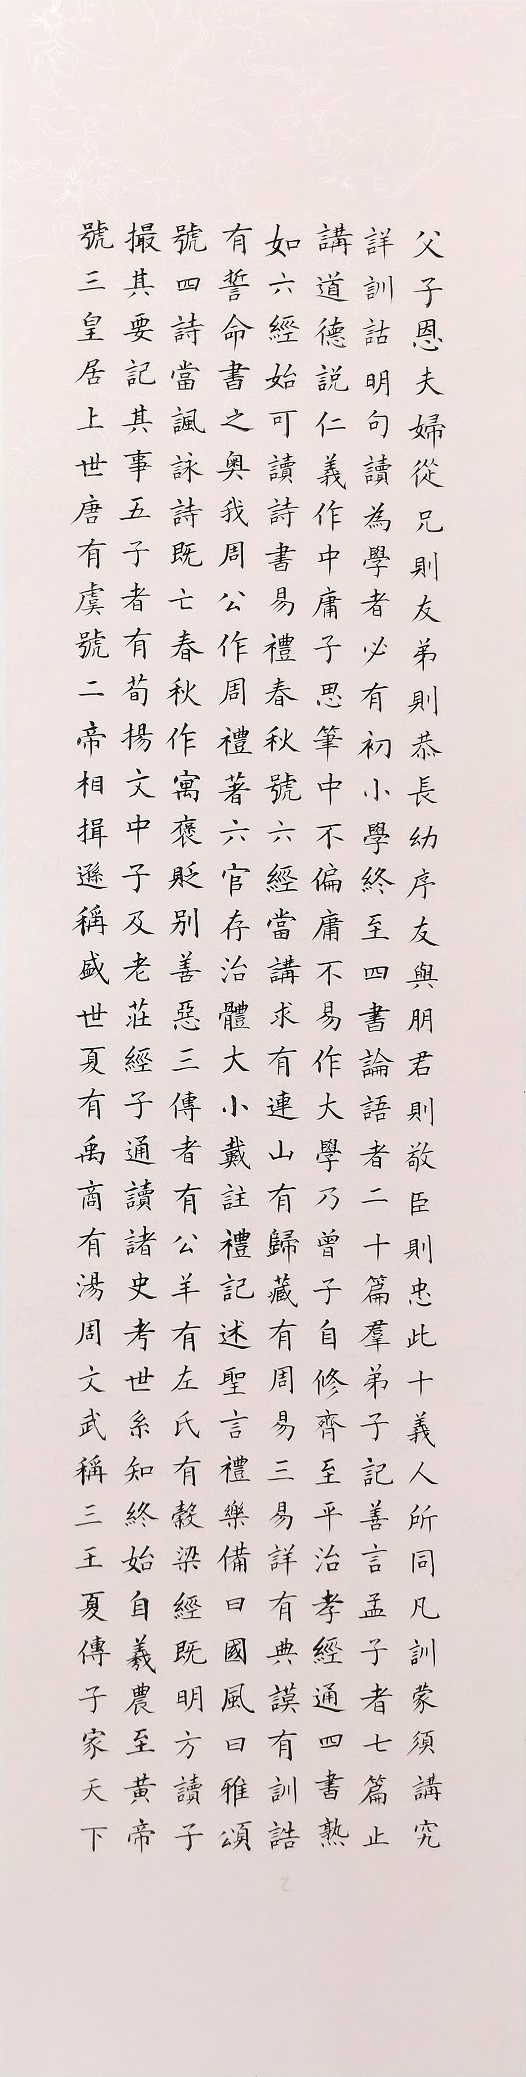 父子恩夫婦從兄則友弟則恭長幼序友與朋君則敬臣則忠此十義人所同凡訓蒙須講究
詳訓詁明句讀為學者必有初小學終至四書論語者二十篇羣弟子記善言孟子者七篇止
講道德説仁義作中庸子思筆中不偏庸不易作大學乃曾子自修齊至平治孝經通四書熟
如六經始可讀詩書易禮春秋號六經當講求有連山有歸藏有周易三易詳有典謨有訓誥
有誓命書之奥我周公作周禮著六官存治體大小戴註禮記述聖言禮樂備曰國風曰雅頌
號四詩當諷詠詩既亡春秋作寓褒貶别善惡三傳者有公羊有左氏有穀梁經既明方讀子
撮其要記其事五子者有荀揚文中子及老莊經子通讀諸史考世系知終始自羲農至黃帝
號三皇居上世唐有虞號二帝相揖遜稱盛世夏有禹商有湯周文武稱三王夏傳子家天下
2